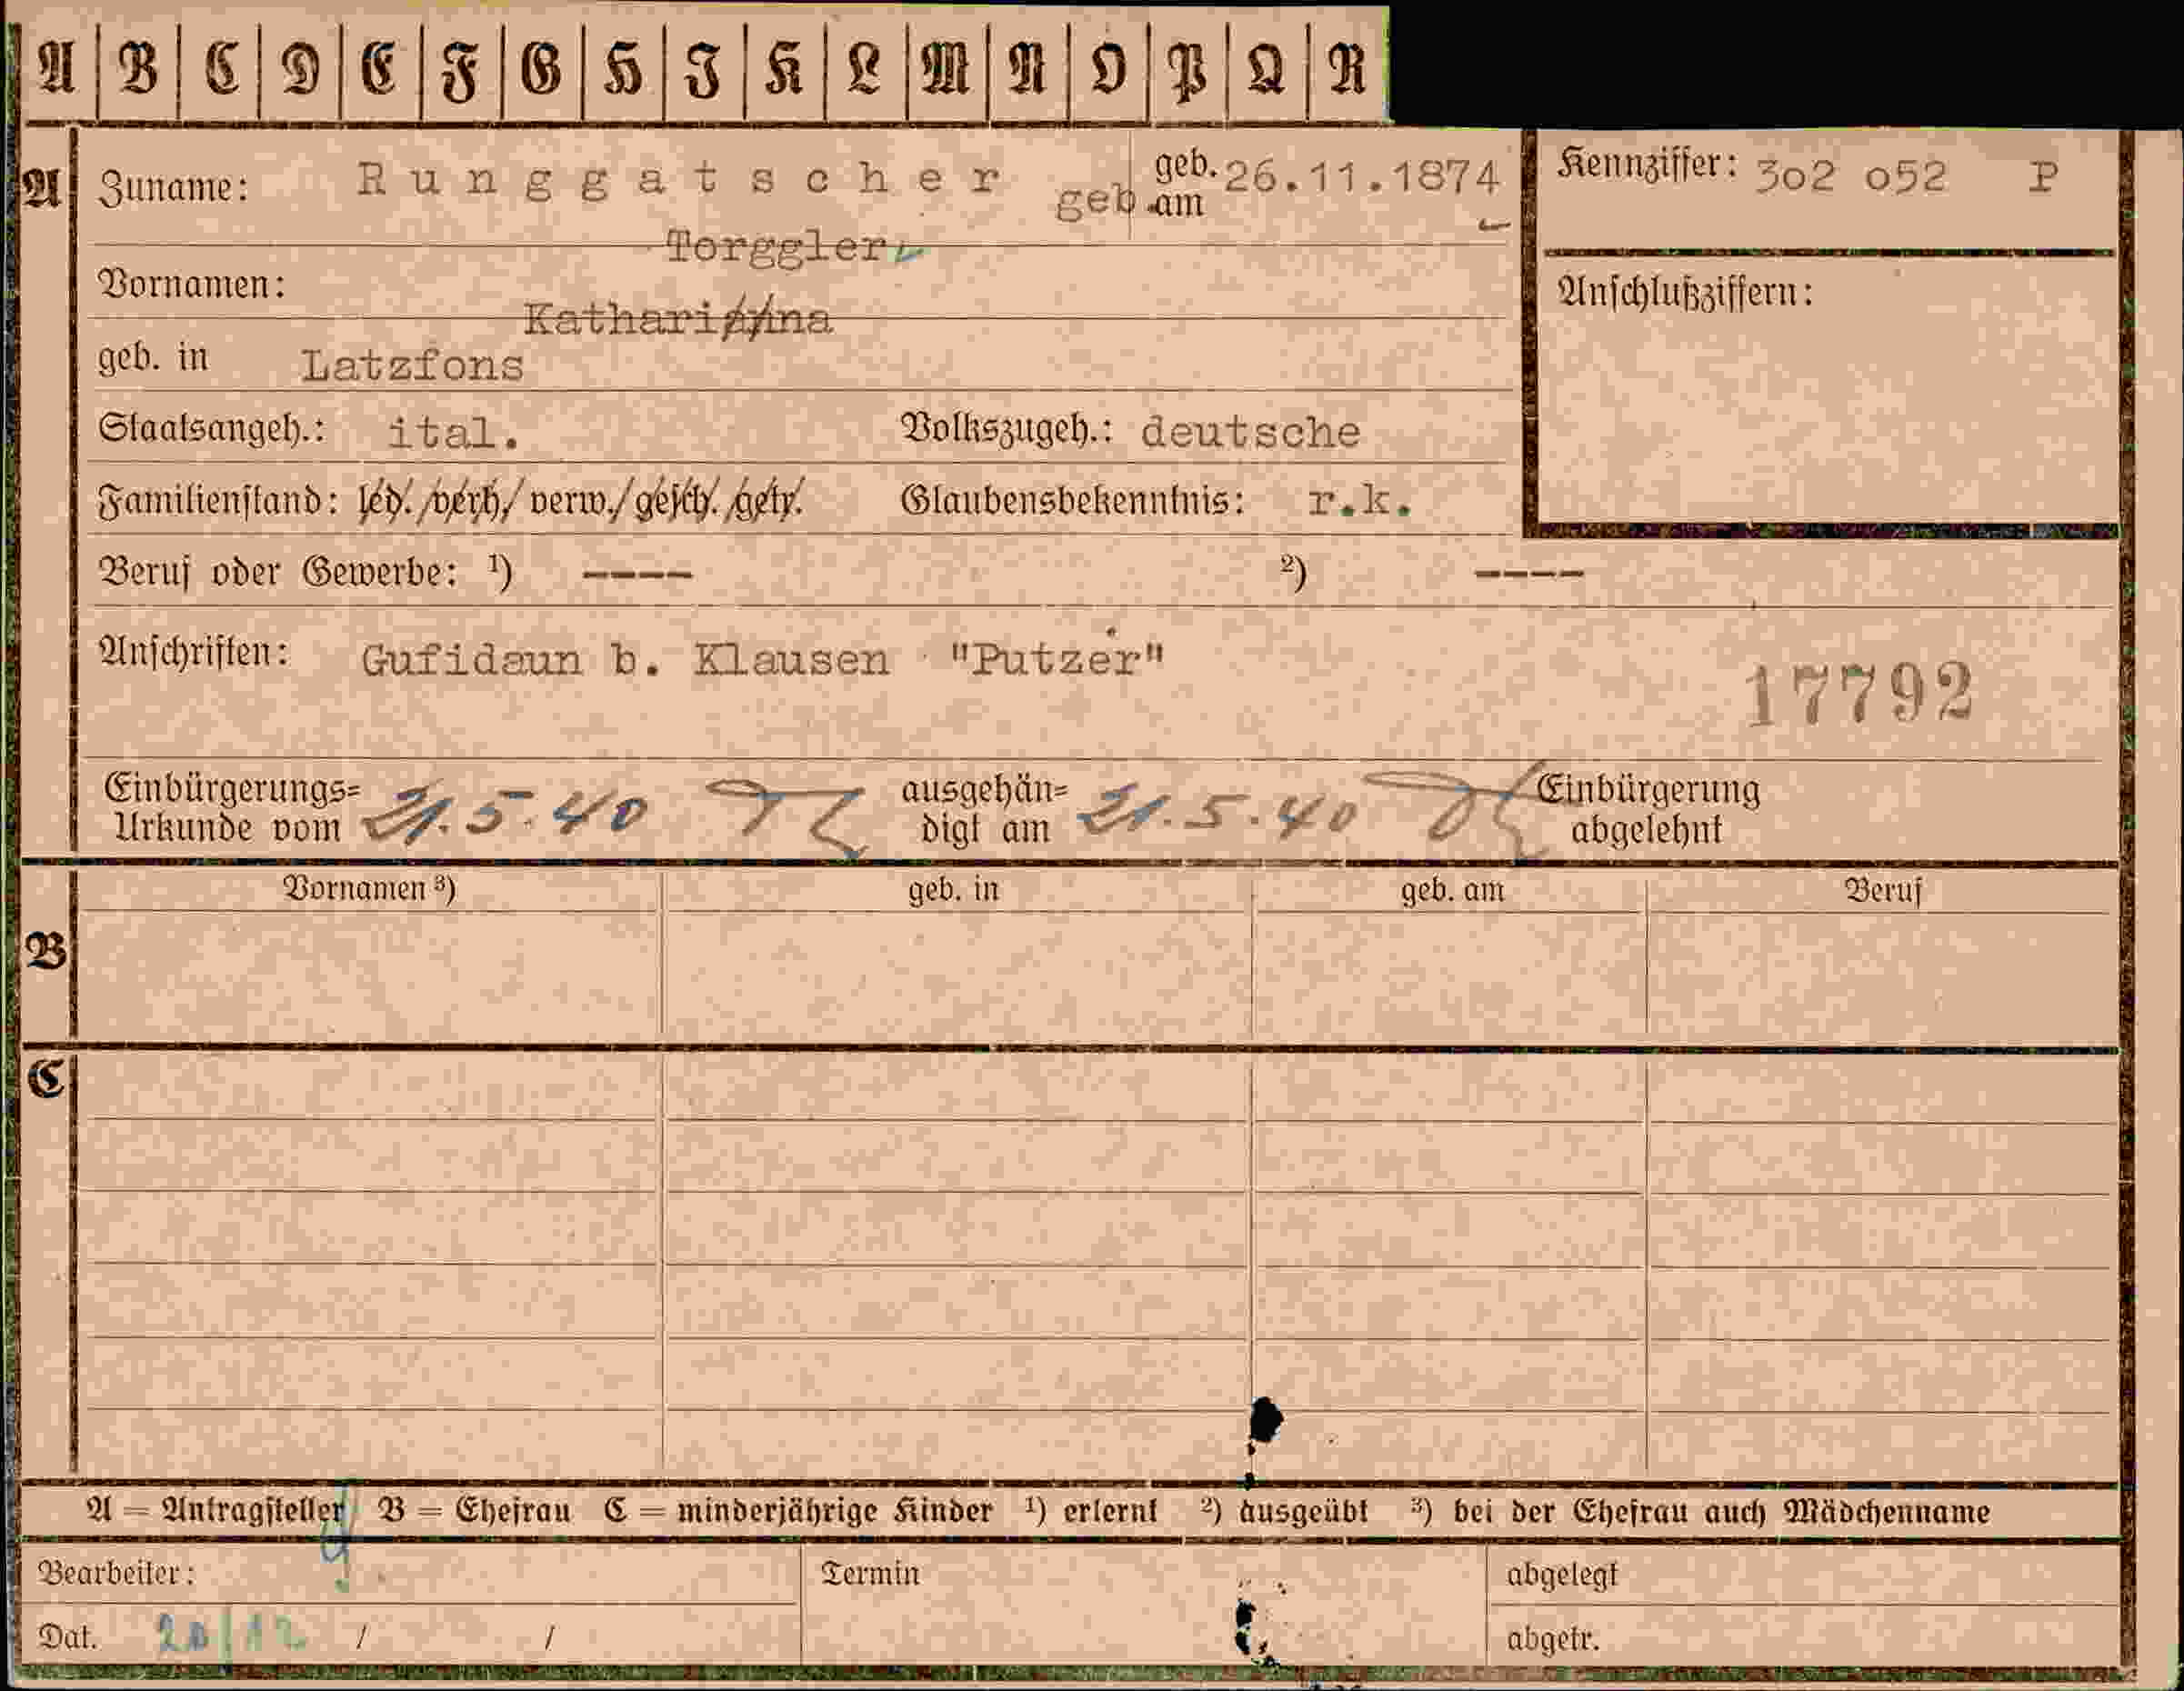 A B C D E F G H I K L M N O P Q R
A Zuname: Runggatscher geb. geb. am 26.11.1874 Kennziffer: 302 052 P
Torggler
Vornamen: Katharina Anschlußziffern:
geb. in Latzfons
Staatsangeh.: ital. Volkszugeh.: deutsche
Familienstand: led./verh./verw./gesch./getr. Glaubensbekenntnis: r.k.
Beruf oder Gewerbe: ¹) ---- ²) ----
Anschriften: Gufidaun b. Klausen "Putzer"
17792
Einbürgerungs= Urkunde vom 21.5.40 ausgehän= digt am 21.5.40 Einbürgerung abgelehnt
B Vornamen ³) geb. in geb. am Beruf
C
A = Antragsteller B = Ehefrau C = minderjährige Kinder ¹) erlernt ²) ausgeübt ³) bei der Ehefrau auch Mädchenname
Bearbeiter: Termin abgelegt
Dat. 20/12 / / abgetr.